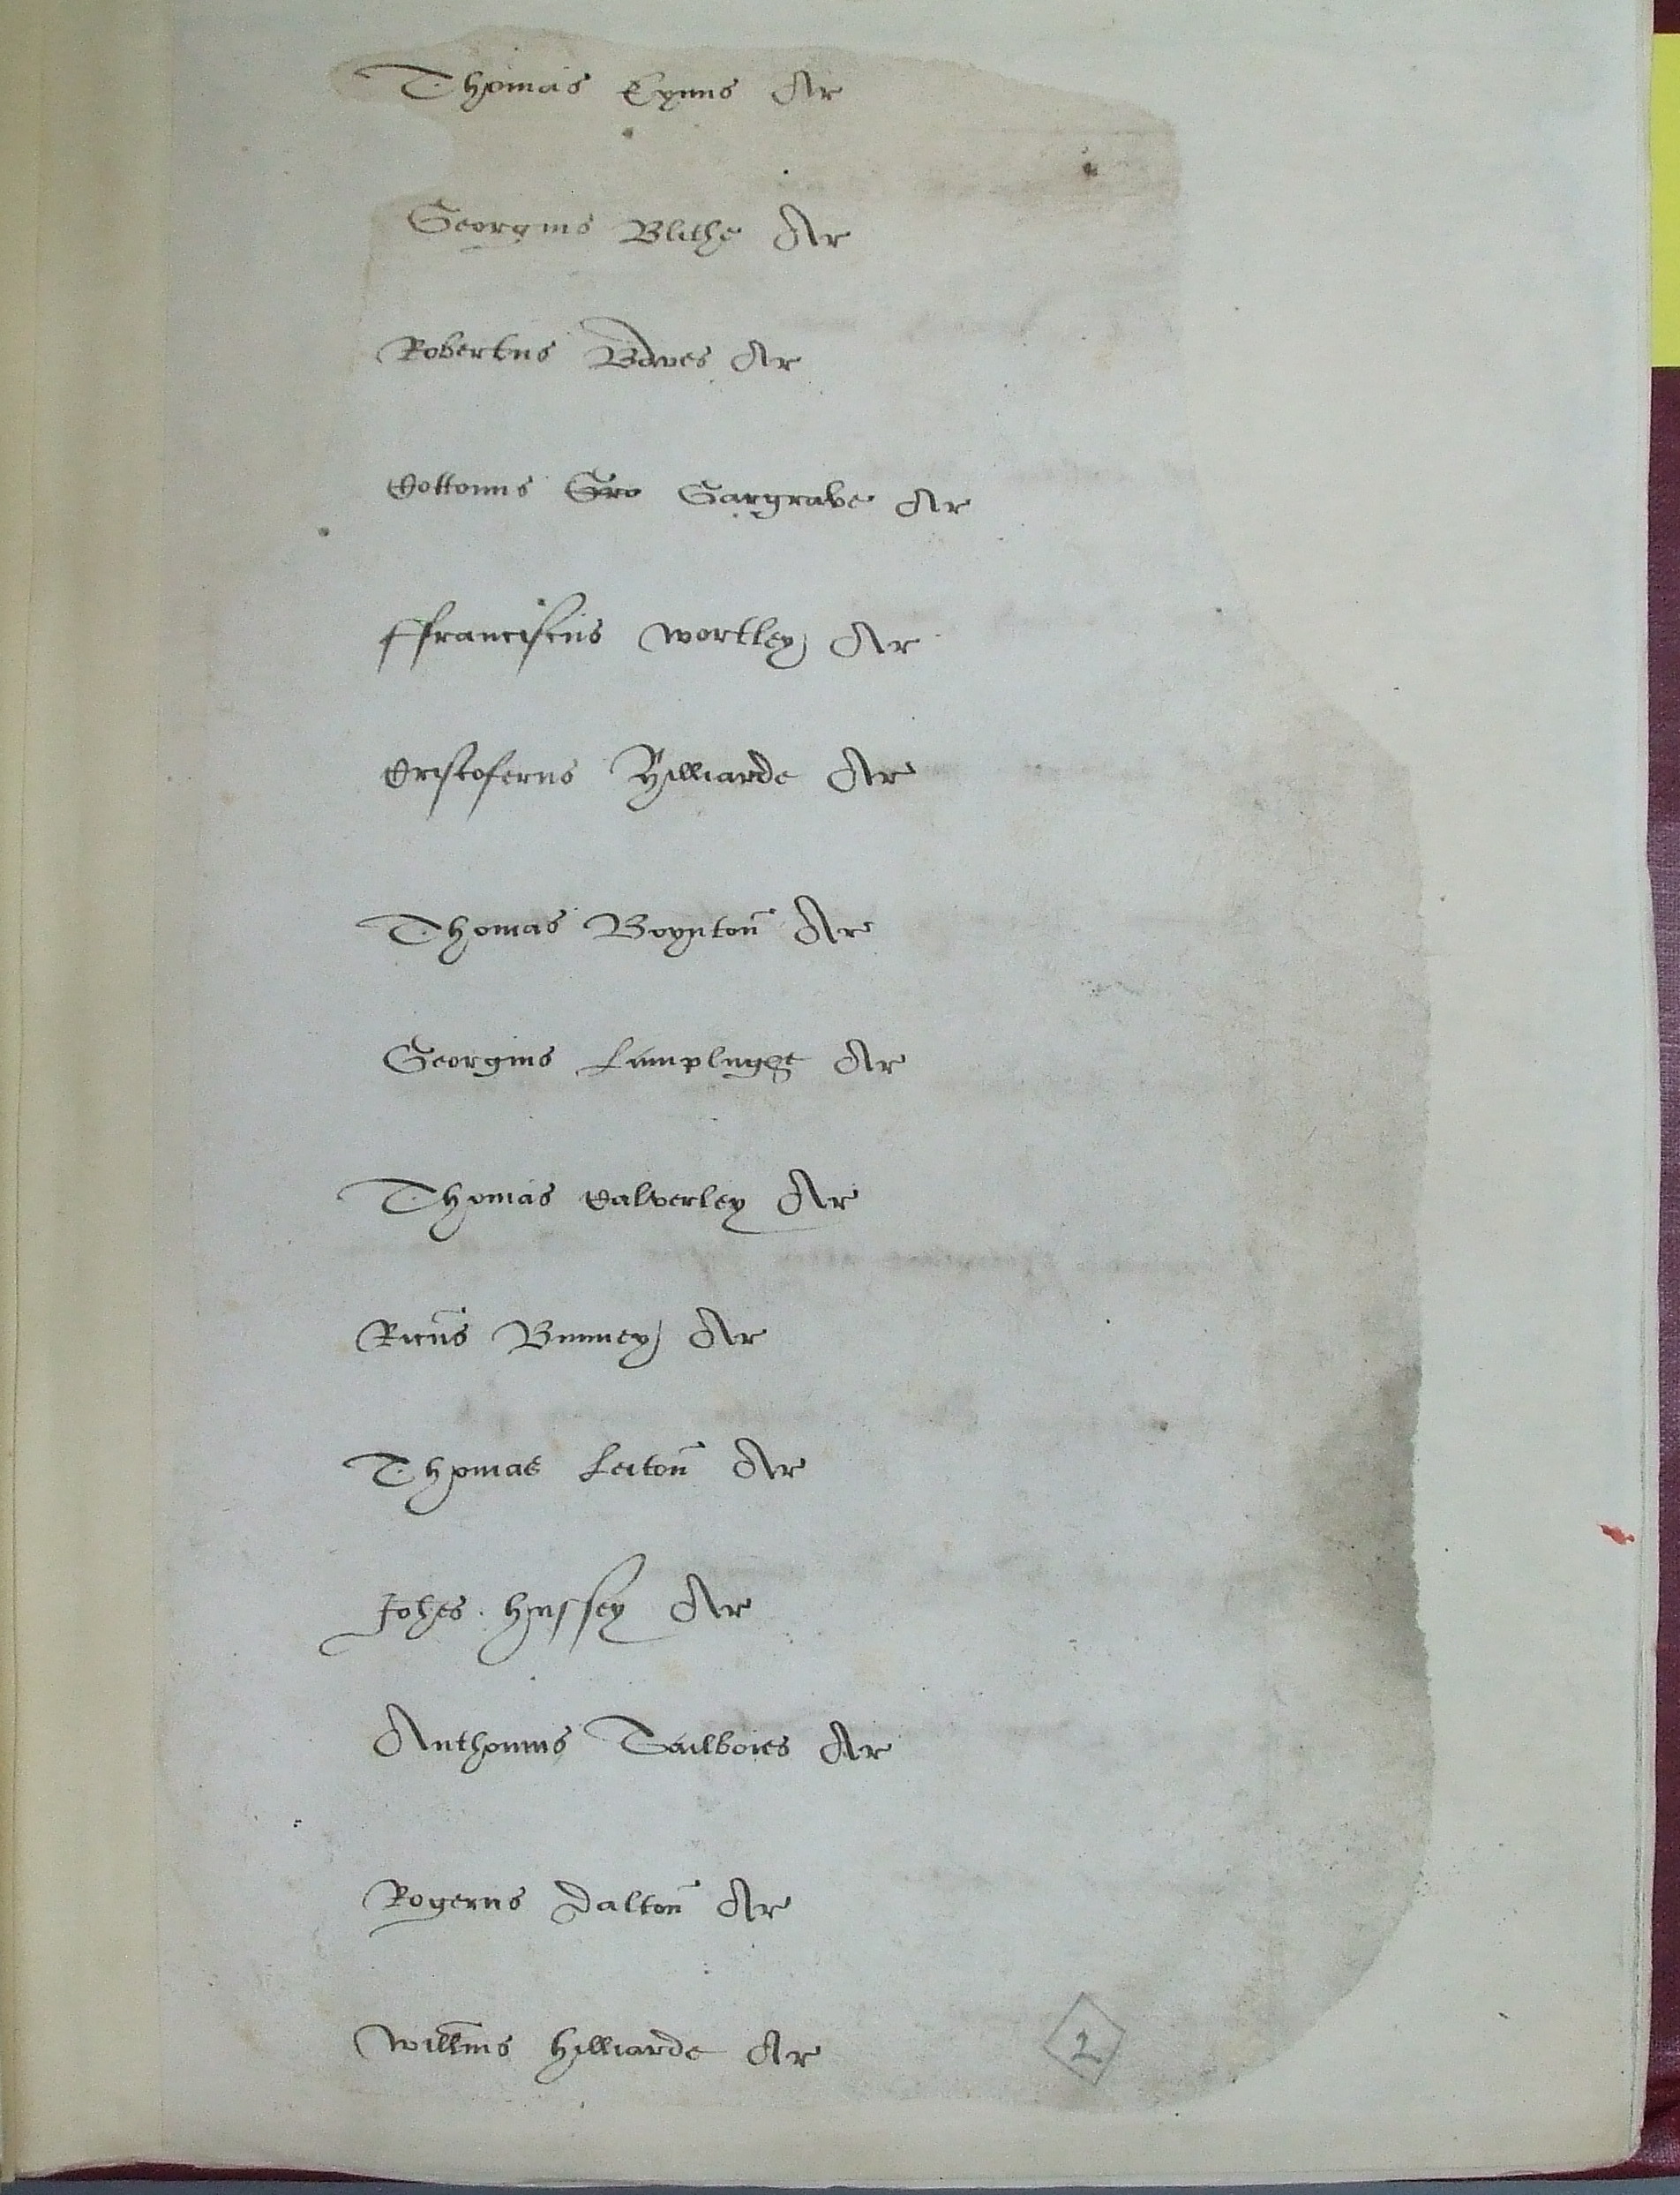 Thomas Eynns Ar
Georgius Blithe Ar
Robertus Baves Ar
Cottonus Gro Gargrave Ar
ffranciscus Wortley Ar
Cristoferus Hilliarde Ar
Thomas Boynton Ar
Georgius Lamplught Ar
Thomas Calverley Ar
Ricus Bunney Ar
Thomas Leiton Ar
Johes Hussey Ar
Anthonius Tailboies Ar
Rogerus Dalton Ar
Willms Hilliarde Ar
2